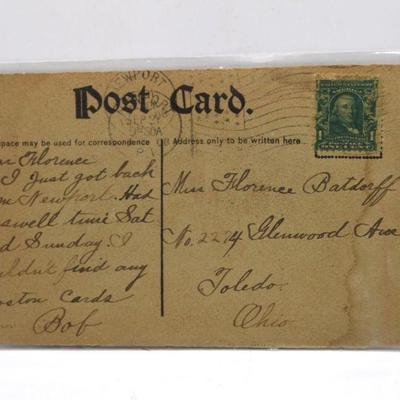 NEWPORT
Post Card.
space may be used for correspondence
Address only to be written here
Florence
I just got back
Newport. Has
swell time Sat
Sunday. I
n't find any
Boston Cards
Bob
Miss Florence Batdorff
No. 2274 Glenwood Ave
Toledo.
Ohio.